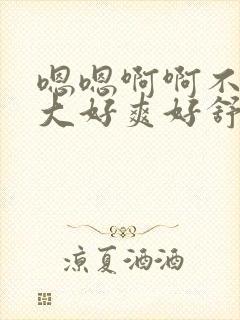 嗯嗯啊啊不
大好爽好舒
凉夏酒酒